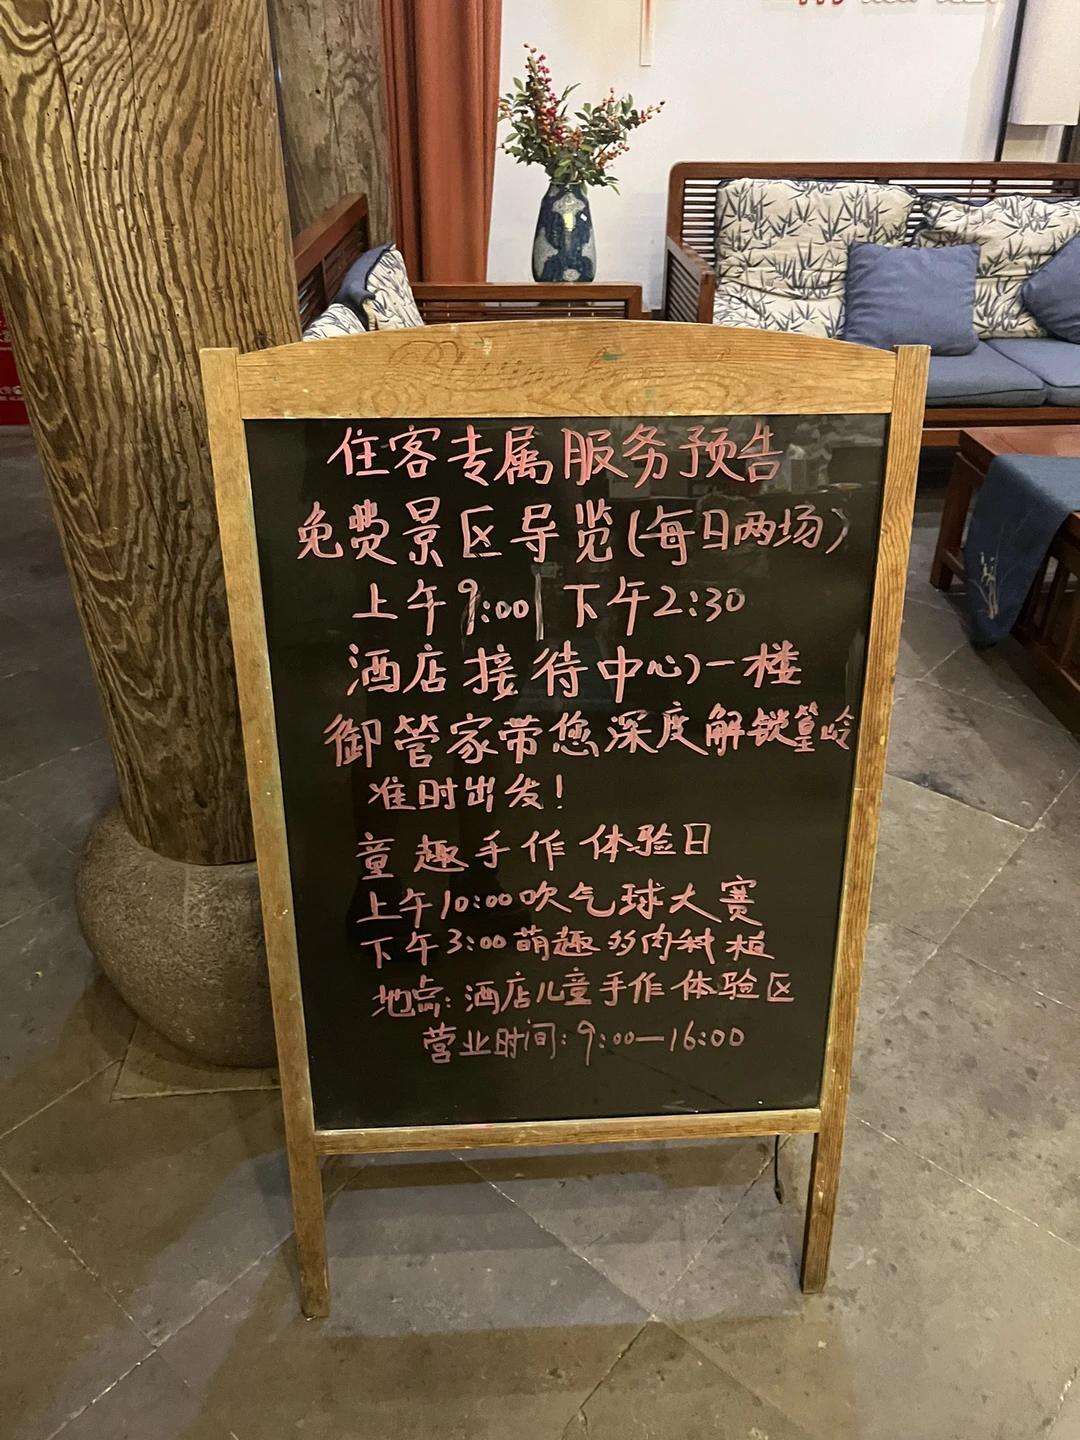 住客专属服务预告
免费景区导览(每日两场)
上午9:00 下午2:30
酒店接待中心一楼
御管家带您深度解锁篁岭
准时出发!
童趣手作体验日
上午10:00吹气球大赛
下午3:00萌趣多肉种植
地点:酒店儿童手作体验区
营业时间:9:00—16:00